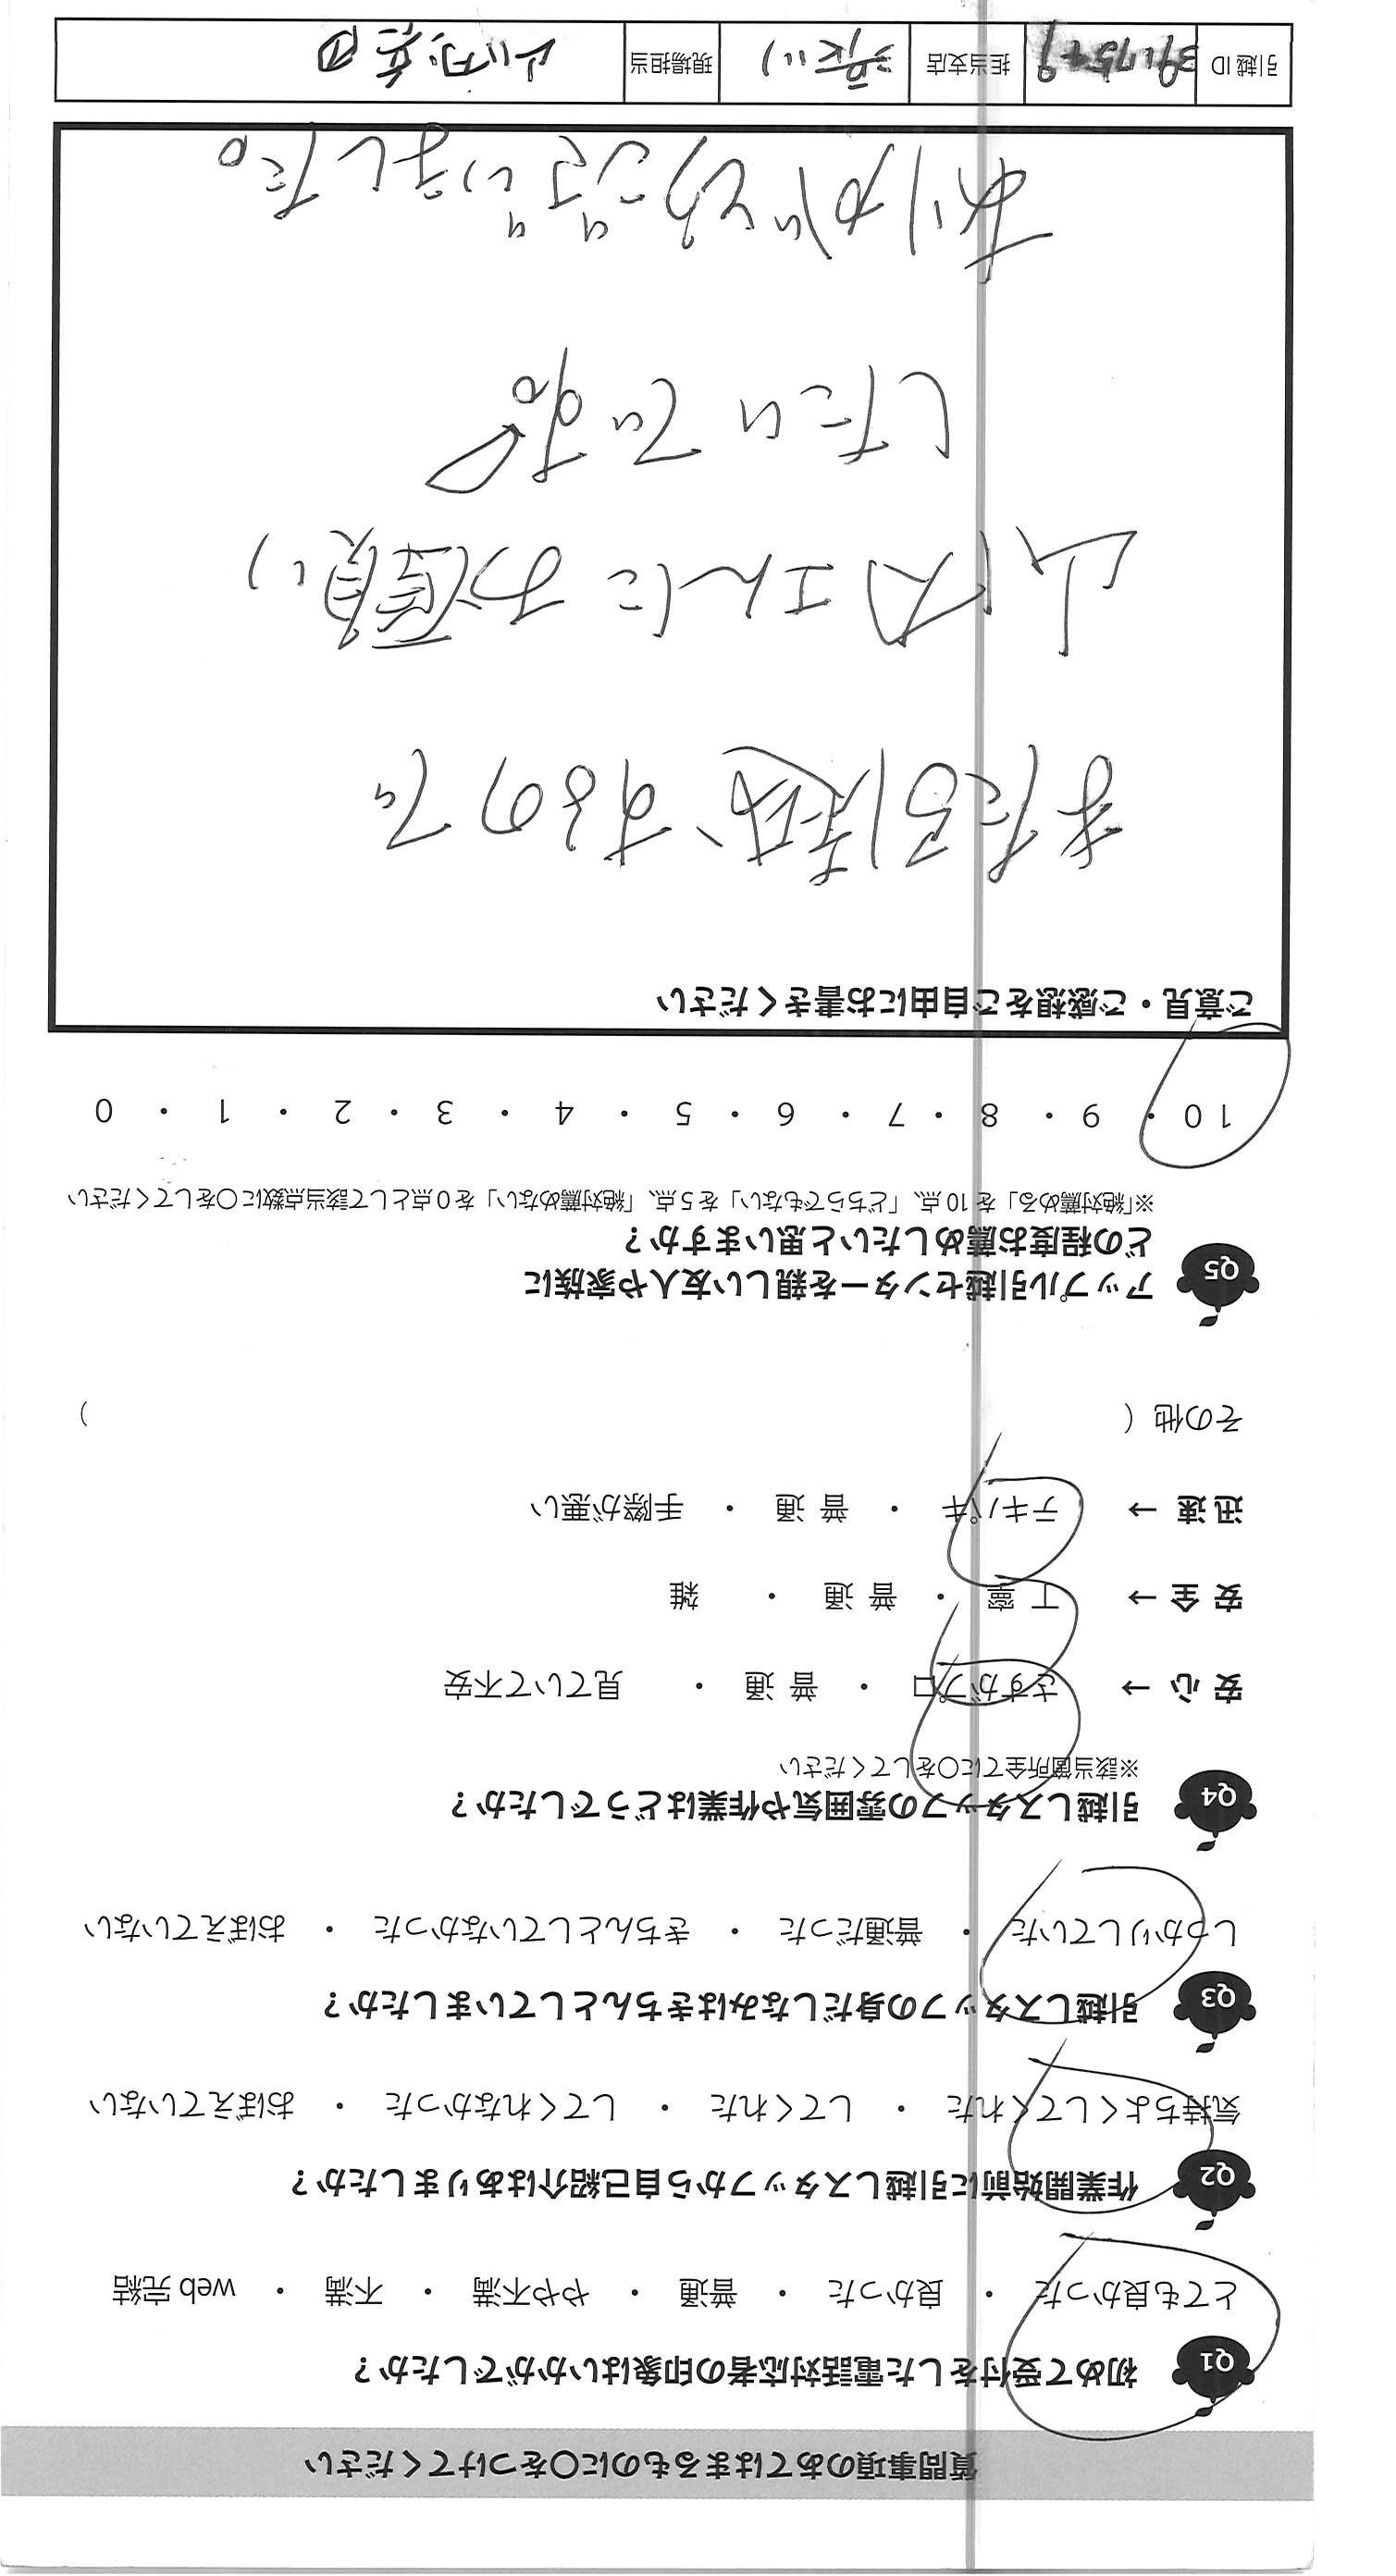 質問事項のあてはまるものに〇をつけてください
Q1 初めて受付をした電話対応者の印象はいかがでしたか？
とても良かった ・ 良かった ・ 普通 ・ やや不満 ・ 不満 ・ web 完結
Q2 作業開始前に引越しスタッフから自己紹介はありましたか？
気持ちよくしてくれた ・ してくれた ・ してくれなかった ・ おぼえていない
Q3 引越しスタッフの身だしなみはきちんとしていましたか？
しっかりしていた ・ 普通だった ・ きちんとしていなかった ・ おぼえていない
Q4 引越しスタッフの雰囲気や作業はどうでしたか？
※該当箇所全てに〇をしてください
安 心 → さすがプロ ・ 普 通 ・ 見ていて不安
安 全 → 丁 寧 ・ 普 通 ・ 雑
迅 速 → テキパキ ・ 普 通 ・ 手際が悪い
その他（ ）
Q5 アップル引越センターを親しい友人や家族に
どの程度お薦めしたいと思いますか？
※「絶対薦める」を 10 点、「どちらでもない」を 5 点、「絶対薦めない」を 0 点として該当点数に〇をしてください
10 ・ 9 ・ 8 ・ 7 ・ 6 ・ 5 ・ 4 ・ 3 ・ 2 ・ 1 ・ 0
ご意見・ご感想をご自由にお書きください
また引越するので
山内さんにお願い
したいです。
ありがとうございました。
引越 ID 担当支店 現場担当 山内